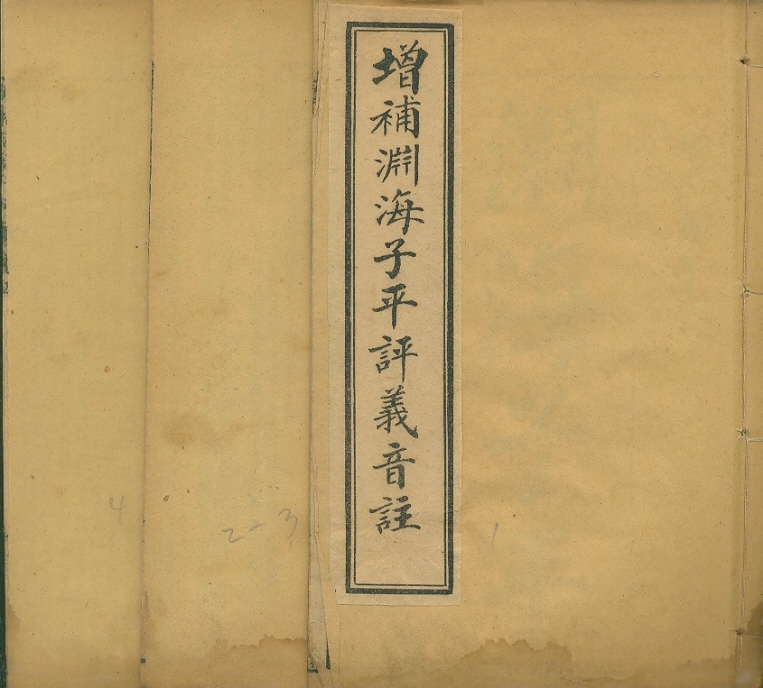 增補淵海子平評義音註
1
2-3
4